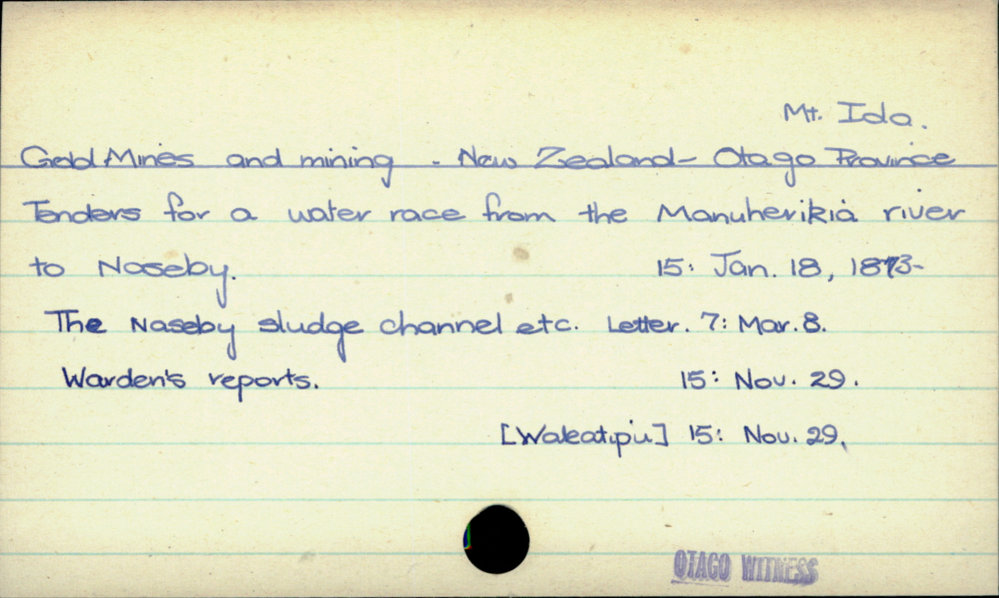 Mt. Ida.
Gold Mines and mining - New Zealand - Otago Province
Tenders for a water race from the Manuherikia river
to Naseby. 15: Jan. 18, 1873-
The Naseby sludge channel etc. Letter. 7: Mar. 8.
Warden's reports. 15: Nov. 29.
[Wakatipu] 15: Nov. 29.
OTAGO WITNESS